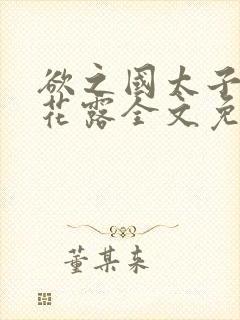 欲之國太子
花露全文免
董某来